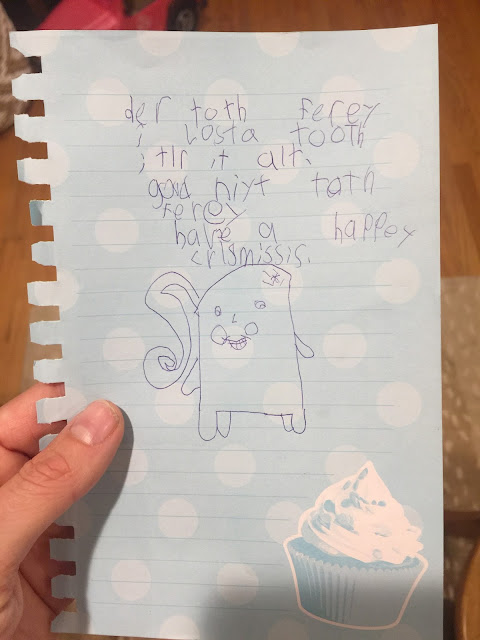 der toth ferey
i losta tooth
i tlr it alt.
goud niyt toth
ferey
have a happey
crismissis.